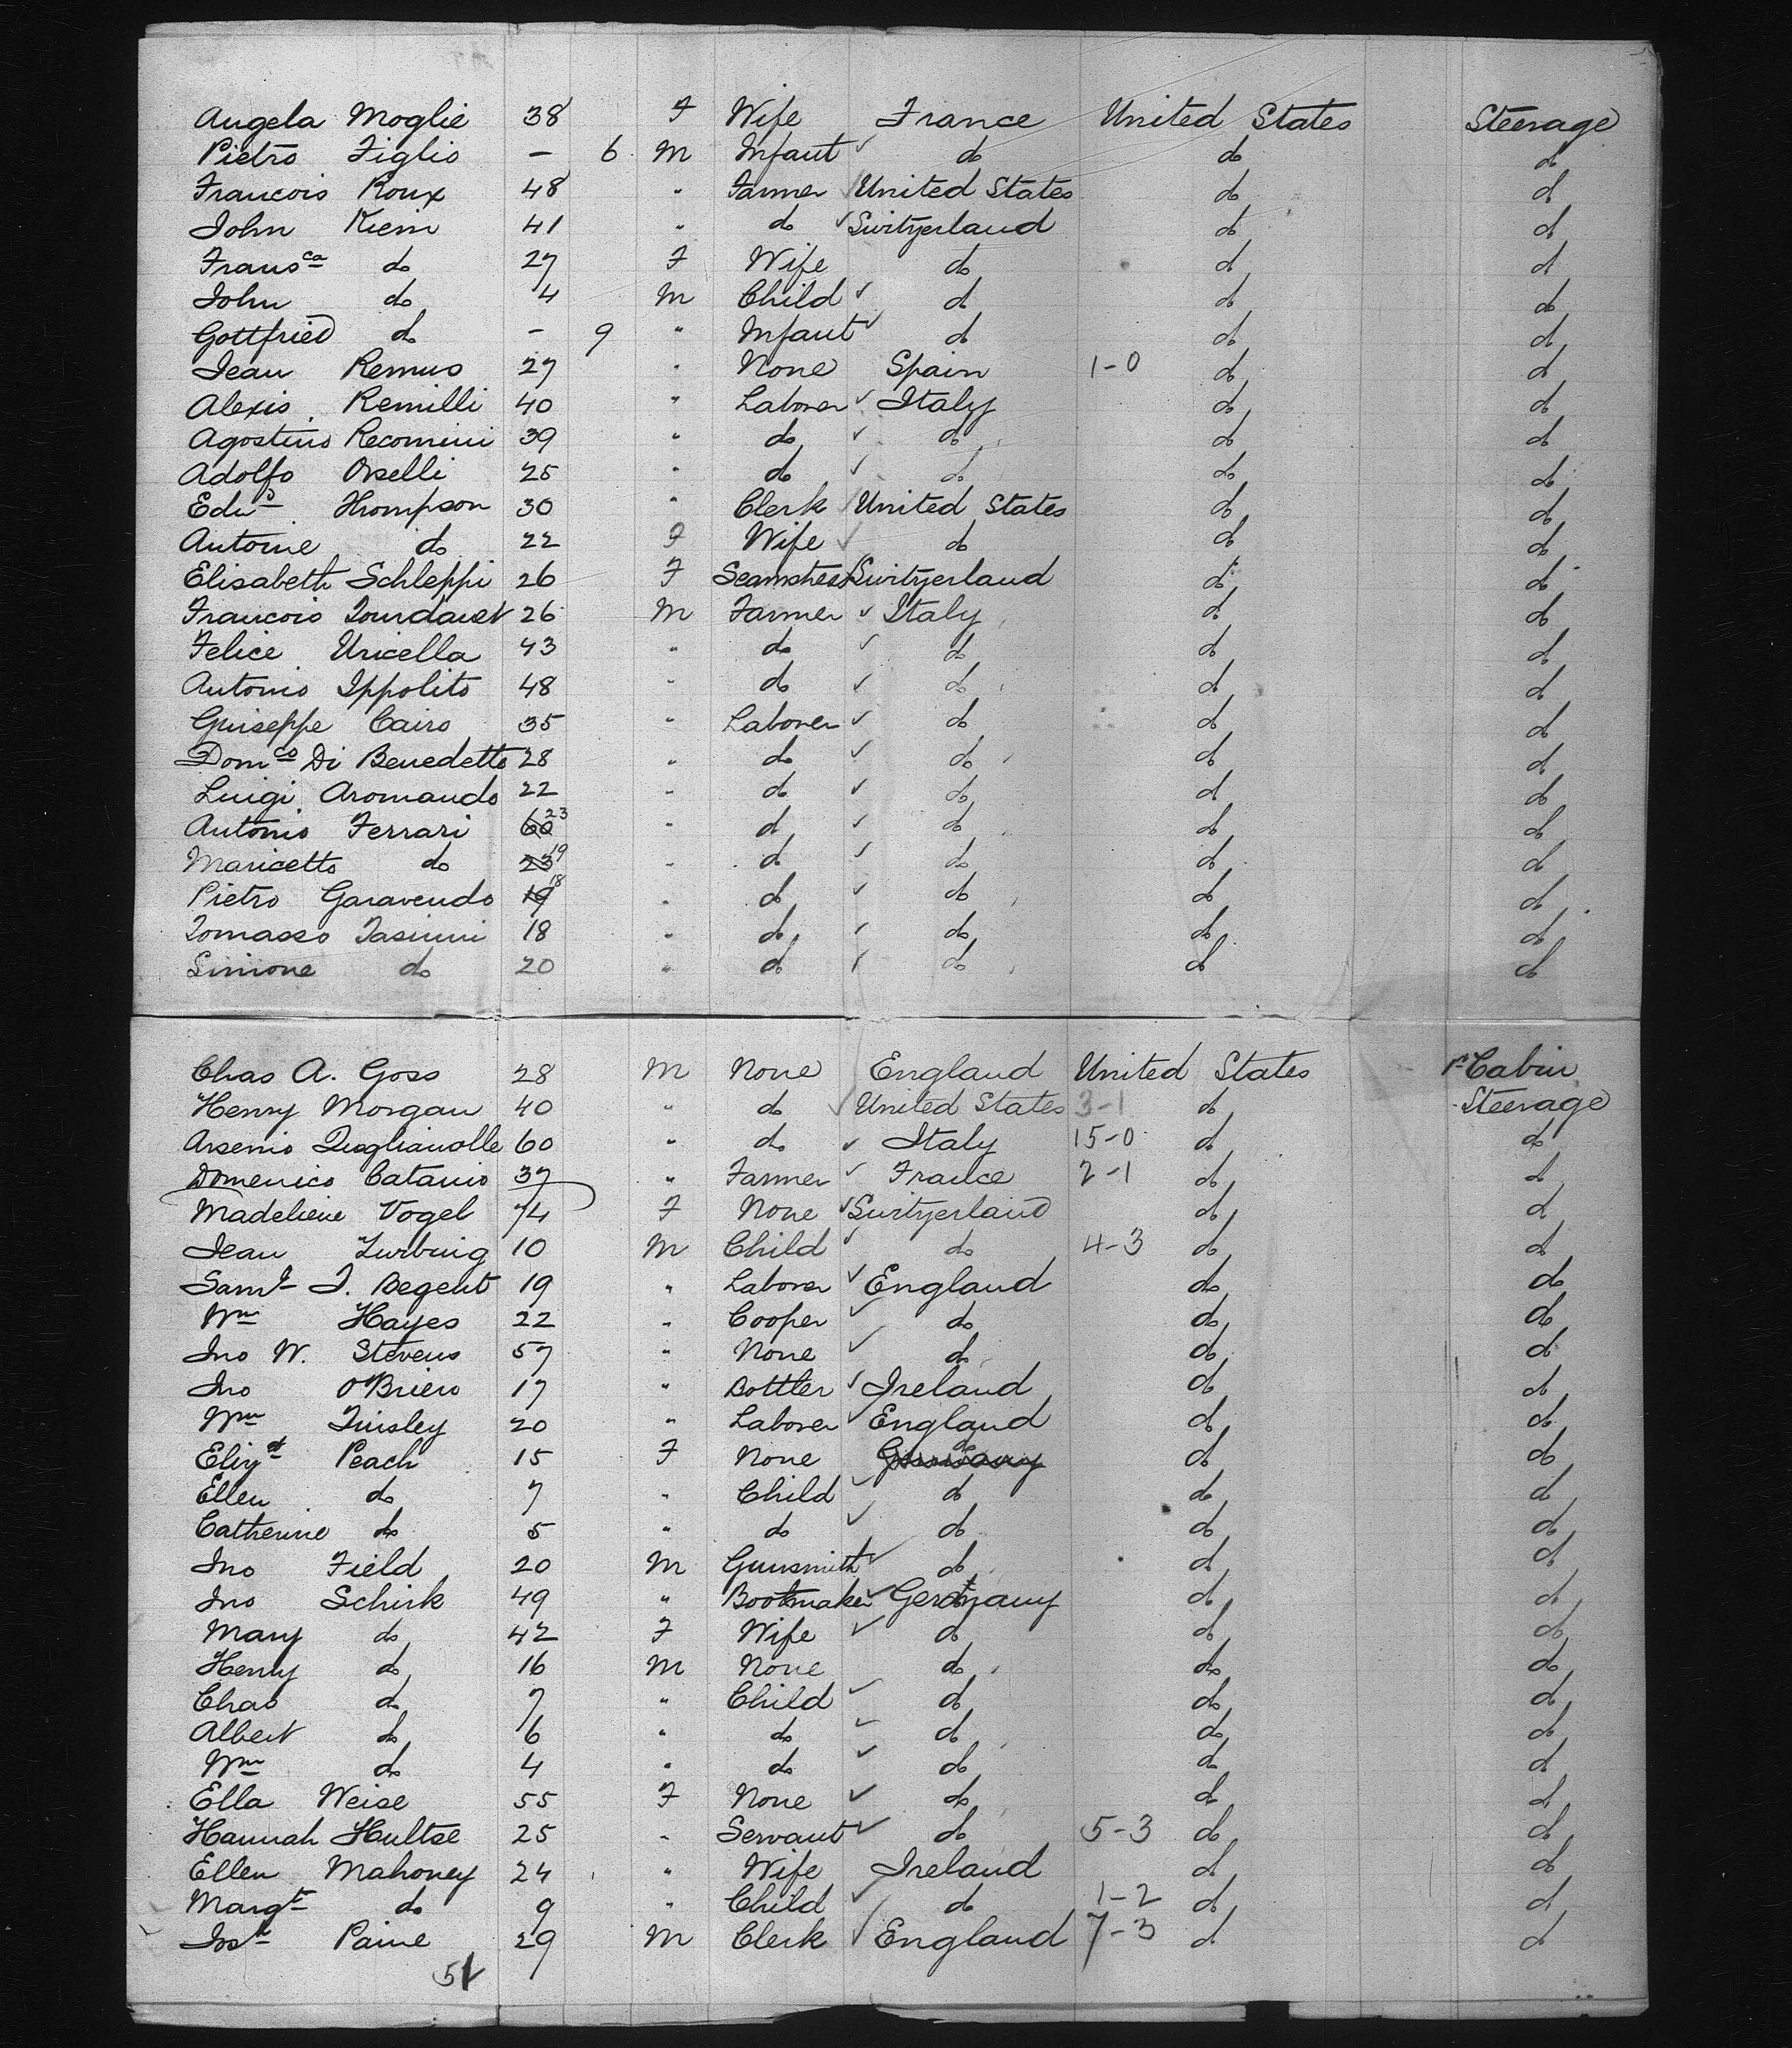 Angela Moglie 38 F Wife France United States Steerage
Pietro Figlio - 6 M Infant do do do
Francois Roux 48 " Farmer United States do do
John Kiem 41 " do Switzerland do do
Fransca do 27 F Wife do do do
John do 4 M Child do do do
Gottfried do - 9 " Infant do do do
Jean Remus 27 " None Spain 1-0 do do
Alexis Remilli 40 " Laborer Italy do do
Agostino Recomini 39 " do do do do
Adolfo Orselli 25 " do do do do
Edwd Thompson 30 " Clerk United States do do
Antoine do 22 F Wife do do do
Elisabeth Schleppi 26 F Seamstress Switzerland do do
Francois Jourdanet 26 M Farmer Italy do do
Felice Uricella 43 " do do do do
Antonio Ippolito 48 " do do do do
Guiseppe Cairo 35 " Laborer do do do
Domco Di Benedetto 28 " do do do do
Luigi Aromando 22 " do do do do
Antonio Ferrari 60 23 " do do do do
Maricetto do 23 19 " do do do do
Pietro Garavendo 19 18 " do do do do
Tomasso Tasinni 18 " do do do do
Simone do 20 " do do do do
Chas A. Goss 28 M None England United States 1st Cabin
Henry Morgan 40 " do United States 3-1 do Steerage
Arsenio Quaglianolle 60 " do Italy 15-0 do do
Domenico Catanio 37 " Farmer France 2-1 do do
Madeliene Vogel 74 F None Switzerland do do
Jean Zurbrug 10 M Child do 4-3 do do
Saml J. Begent 19 " Laborer England do do
Wm Hayes 22 " Cooper do do do
Jno W. Stevens 57 " None do do do
Jno O'Brien 17 " Bottler Ireland do do
Wm Tinsley 20 " Laborer England do do
Elizt Peach 15 F None Germany do do do
Ellen do 7 " Child do do do
Catherine do 5 " do do do do
Jno Field 20 M Gunsmith do do do
Jno Schirk 49 " Bootmaker Germany do do
Mary do 42 F Wife do do do
Henry do 16 M None do do do
Chas do 7 " Child do do do
Albert do 6 " do do do do
Wm do 4 " do do do do
Ella Weise 55 F None do do do
Hannah Hultse 25 " Servant do 5-3 do do
Ellen Mahoney 24 " Wife Ireland do do
Margt do 9 " Child do 1-2 do do
Josh Paine 29 M Clerk England 7-3 do do
51